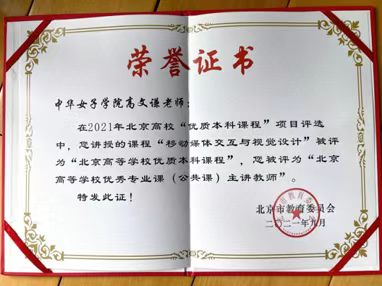 荣誉证书
中华女子学院高文谦老师：
在2021年北京高校“优质本科课程”项目评选
中，您讲授的课程“移动媒体交互与视觉设计”被评
为“北京高等学校优质本科课程”，您被评为“北京
高等学校优秀专业课（公共课）主讲教师”。
特发此证！
北京市教育委员会
二〇二一年九月